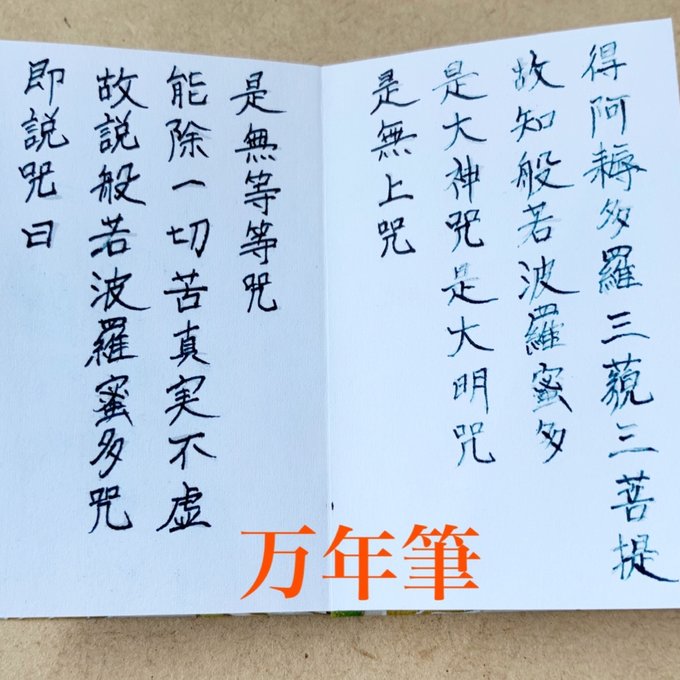 得阿耨多羅三藐三菩提
故知般若波羅蜜多
是大神咒是大明咒
是無上咒
是無等等咒
能除一切苦真実不虚
故説般若波羅蜜多咒
即説咒曰
万年筆